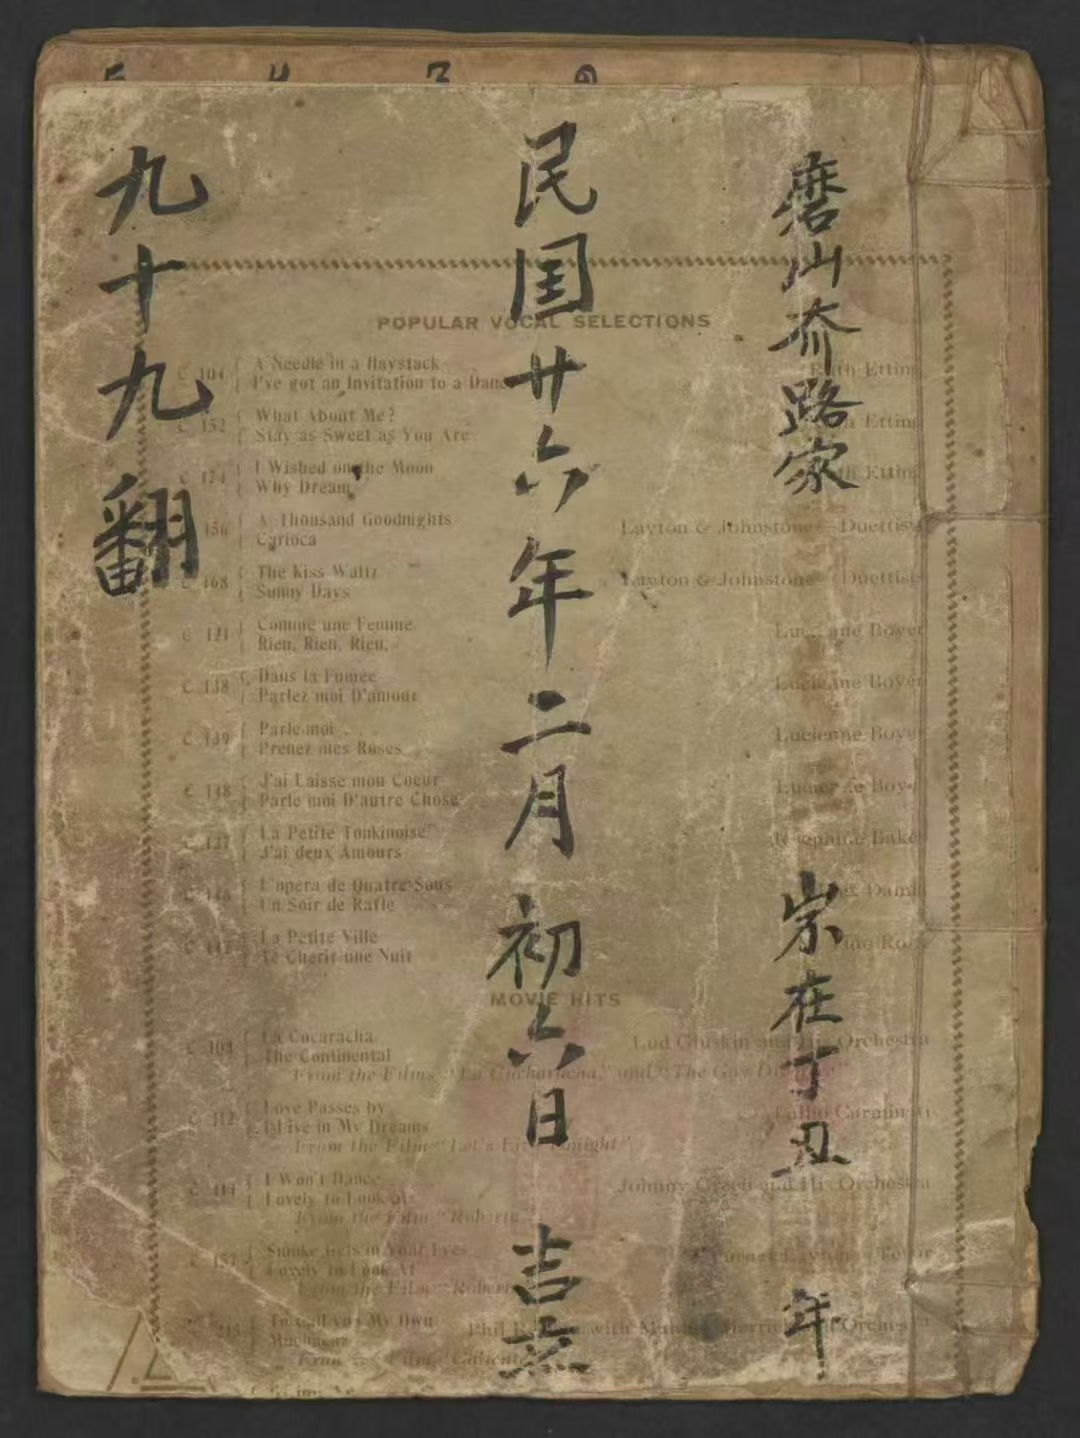 磨山夼路家 宗在丁丑 年
民囯廿六年二月初六日 吉立
九十九翻
POPULAR VOCAL SELECTIONS
C 104 A Needle in a Haystack
I've got an Invitation to a Dance Ruth Etting
C 152 What About Me?
Stay as Sweet as You Are Etting
C 174 I Wished on the Moon
Why Dream Etting
156 A Thousand Goodnights
Carioca Layton & Johnstone—Duettists
C 168 The Kiss Waltz
Sunny Days Layton & Johnstone—Duettists
C 121 Comme une Femme
Rien, Rien, Rien, Lucienne Boyer
C 138 Dans la Fumee
Parlez moi D'amour Lucienne Boyer
C 139 Parle-moi . . .
Prenez mes Roses Lucienne Boyer
C 148 J'ai Laisse mon Coeur
Parle moi D'autre Chose Lucienne Boyer
127 La Petite Tonkinoise
J'ai deux Amours Josephine Baker
L'opera de Quatre Sous
Un Soir de Rafle
La Petite Ville
Te Cherir une Nuit
MOVIE HITS
C 103 La Cucaracha
The Continental Lud Gluskin and His Orchestra
From the Films "La Cucharacha," and "The Gay Divorcee"
C 112 Love Passes by
I Live in My Dreams Tullio Carminati
From the Film "Let's Live Tonight"
C 114 I Won't Dance
Lovely to Look at Johnny Green and His Orchestra
From the Film "Roberta"
C 157 Smoke Gets in Your Eyes
Lovely to Look At Turner Layton—Tenor
From the Film "Roberta"
Muchacha Orchestra
From Film Caliente